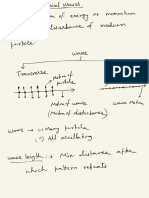 ical Waves
of energy or momentum
disturbance of medium
particle
wave
Transverse
Motion of
particle
Motion of wave
(Motion of disturbance)
wave Motion
wave → (i) Many particle
(ii) All oscillating
wave length : → Min. distance after
which pattern repeats.